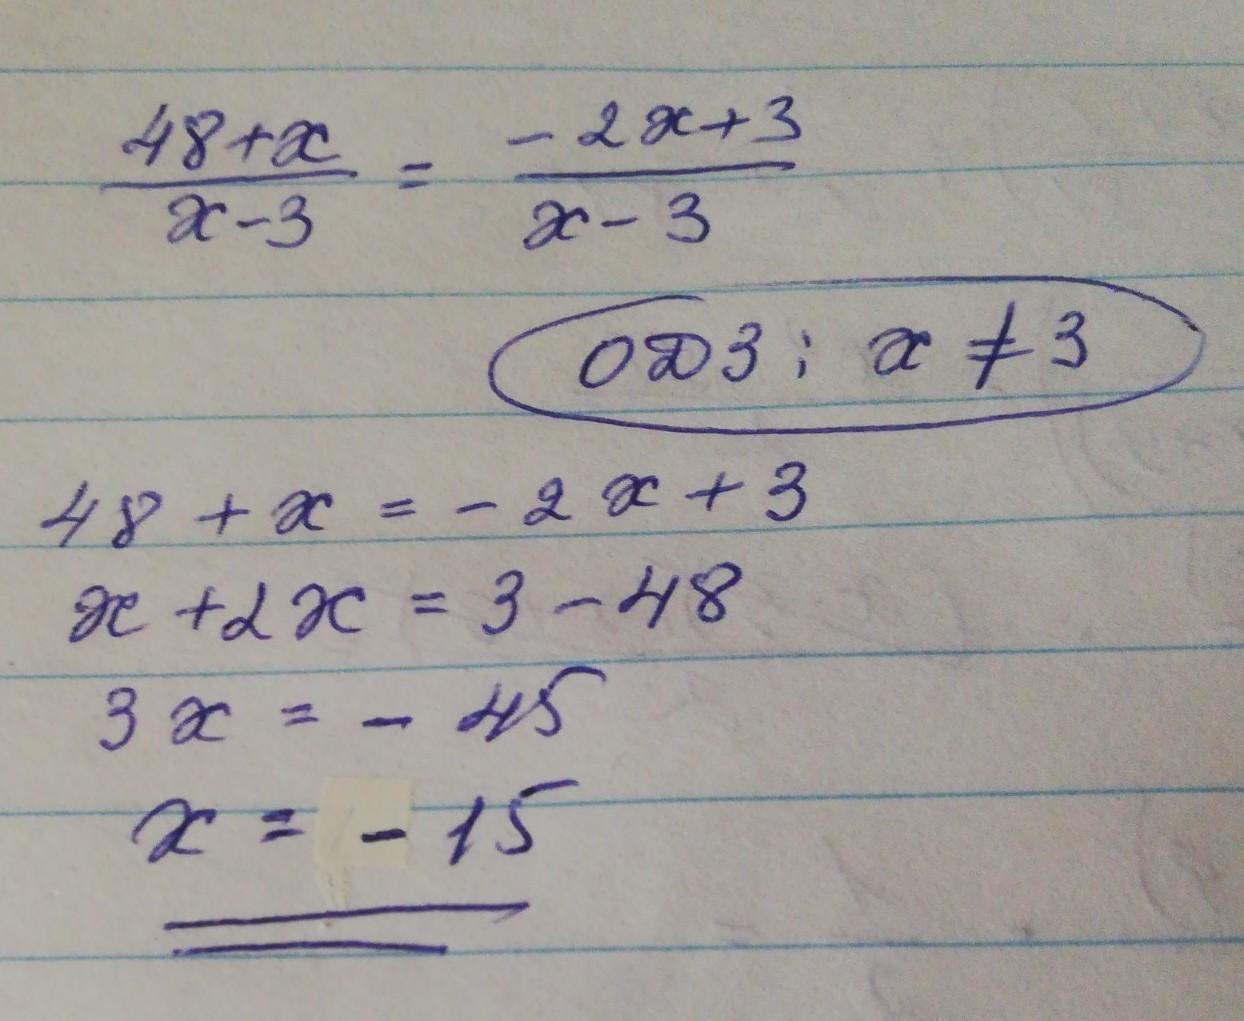 48+x / x-3 = -2x+3 / x-3
ОДЗ: x ≠ 3
48 + x = -2x + 3
x + 2x = 3 - 48
3x = - 45
x = - 15